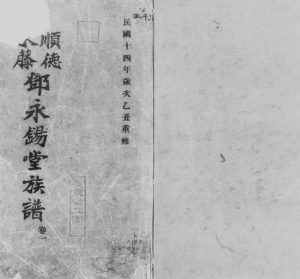 民國十四年歲次乙丑重修
順德
水藤
鄧永錫堂族譜
卷一